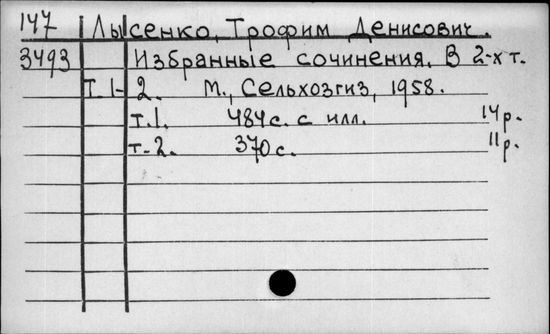 147 Лысенко, Трофим Денисович.
3493 Избранные сочинения. В 2-х т.
Т. 1- 2. М., Сельхозгиз, 1958.
т.1. 484 с. с илл. 14 р.
т.2. 370 с. 11 р.